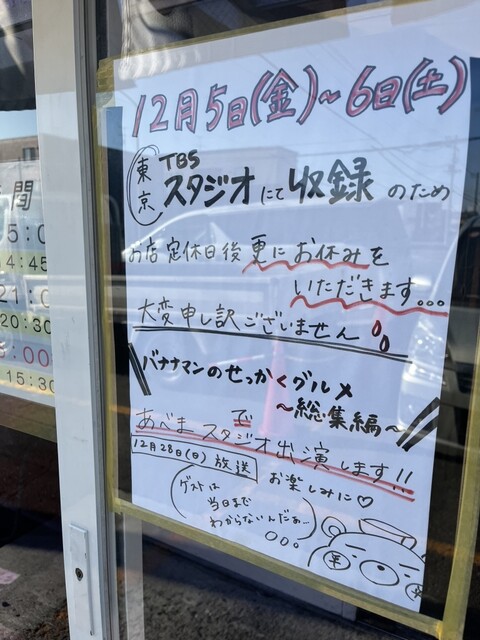 12月5日(金)~6日(土)
東京 TBS
スタジオにて収録のため
お店定休日後更にお休みを
いただきます...
大変申し訳ございません
バナナマンのせっかくグルメ
~総集編~
で
あべま スタジオ出演します!!
12月28日(日)放送
お楽しみに♡
ゲストは
当日まで
わからないんだぁー
間
5:0
14:45
21:0
20:30
:00
15:30